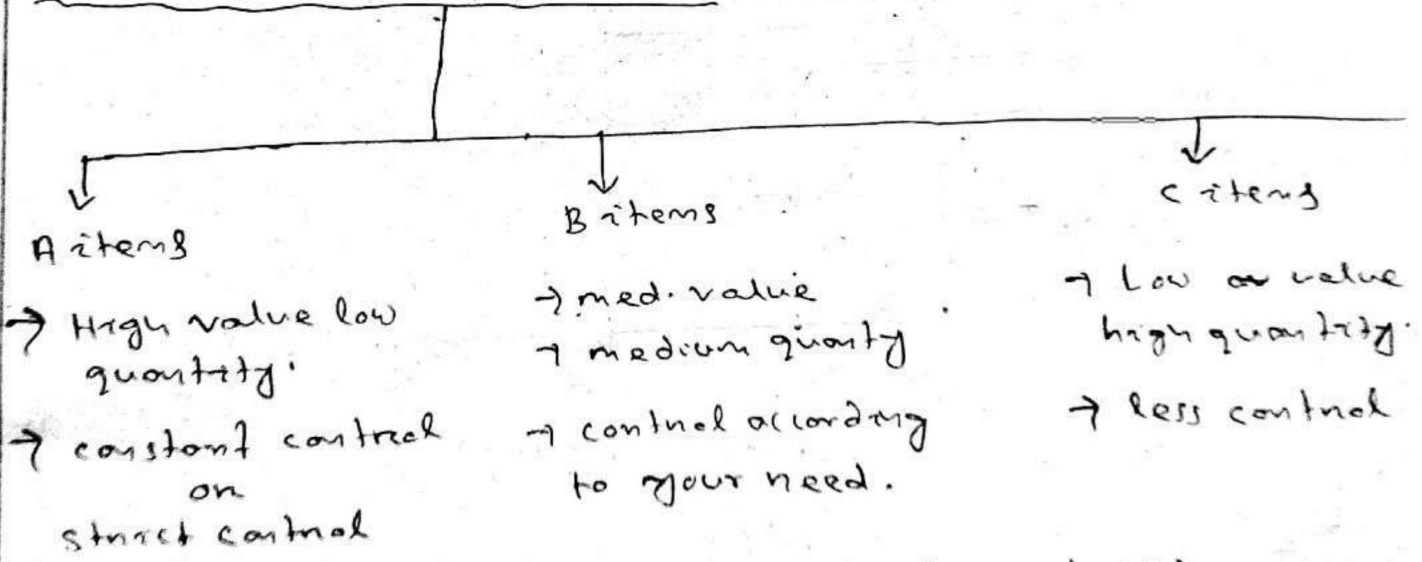 A items
→ High value low
quantity.
→ constant control
or
strict control
B items
→ med. value
→ medium quanty
→ control according
to your need.
C items
→ Low value
high quantity.
→ less control